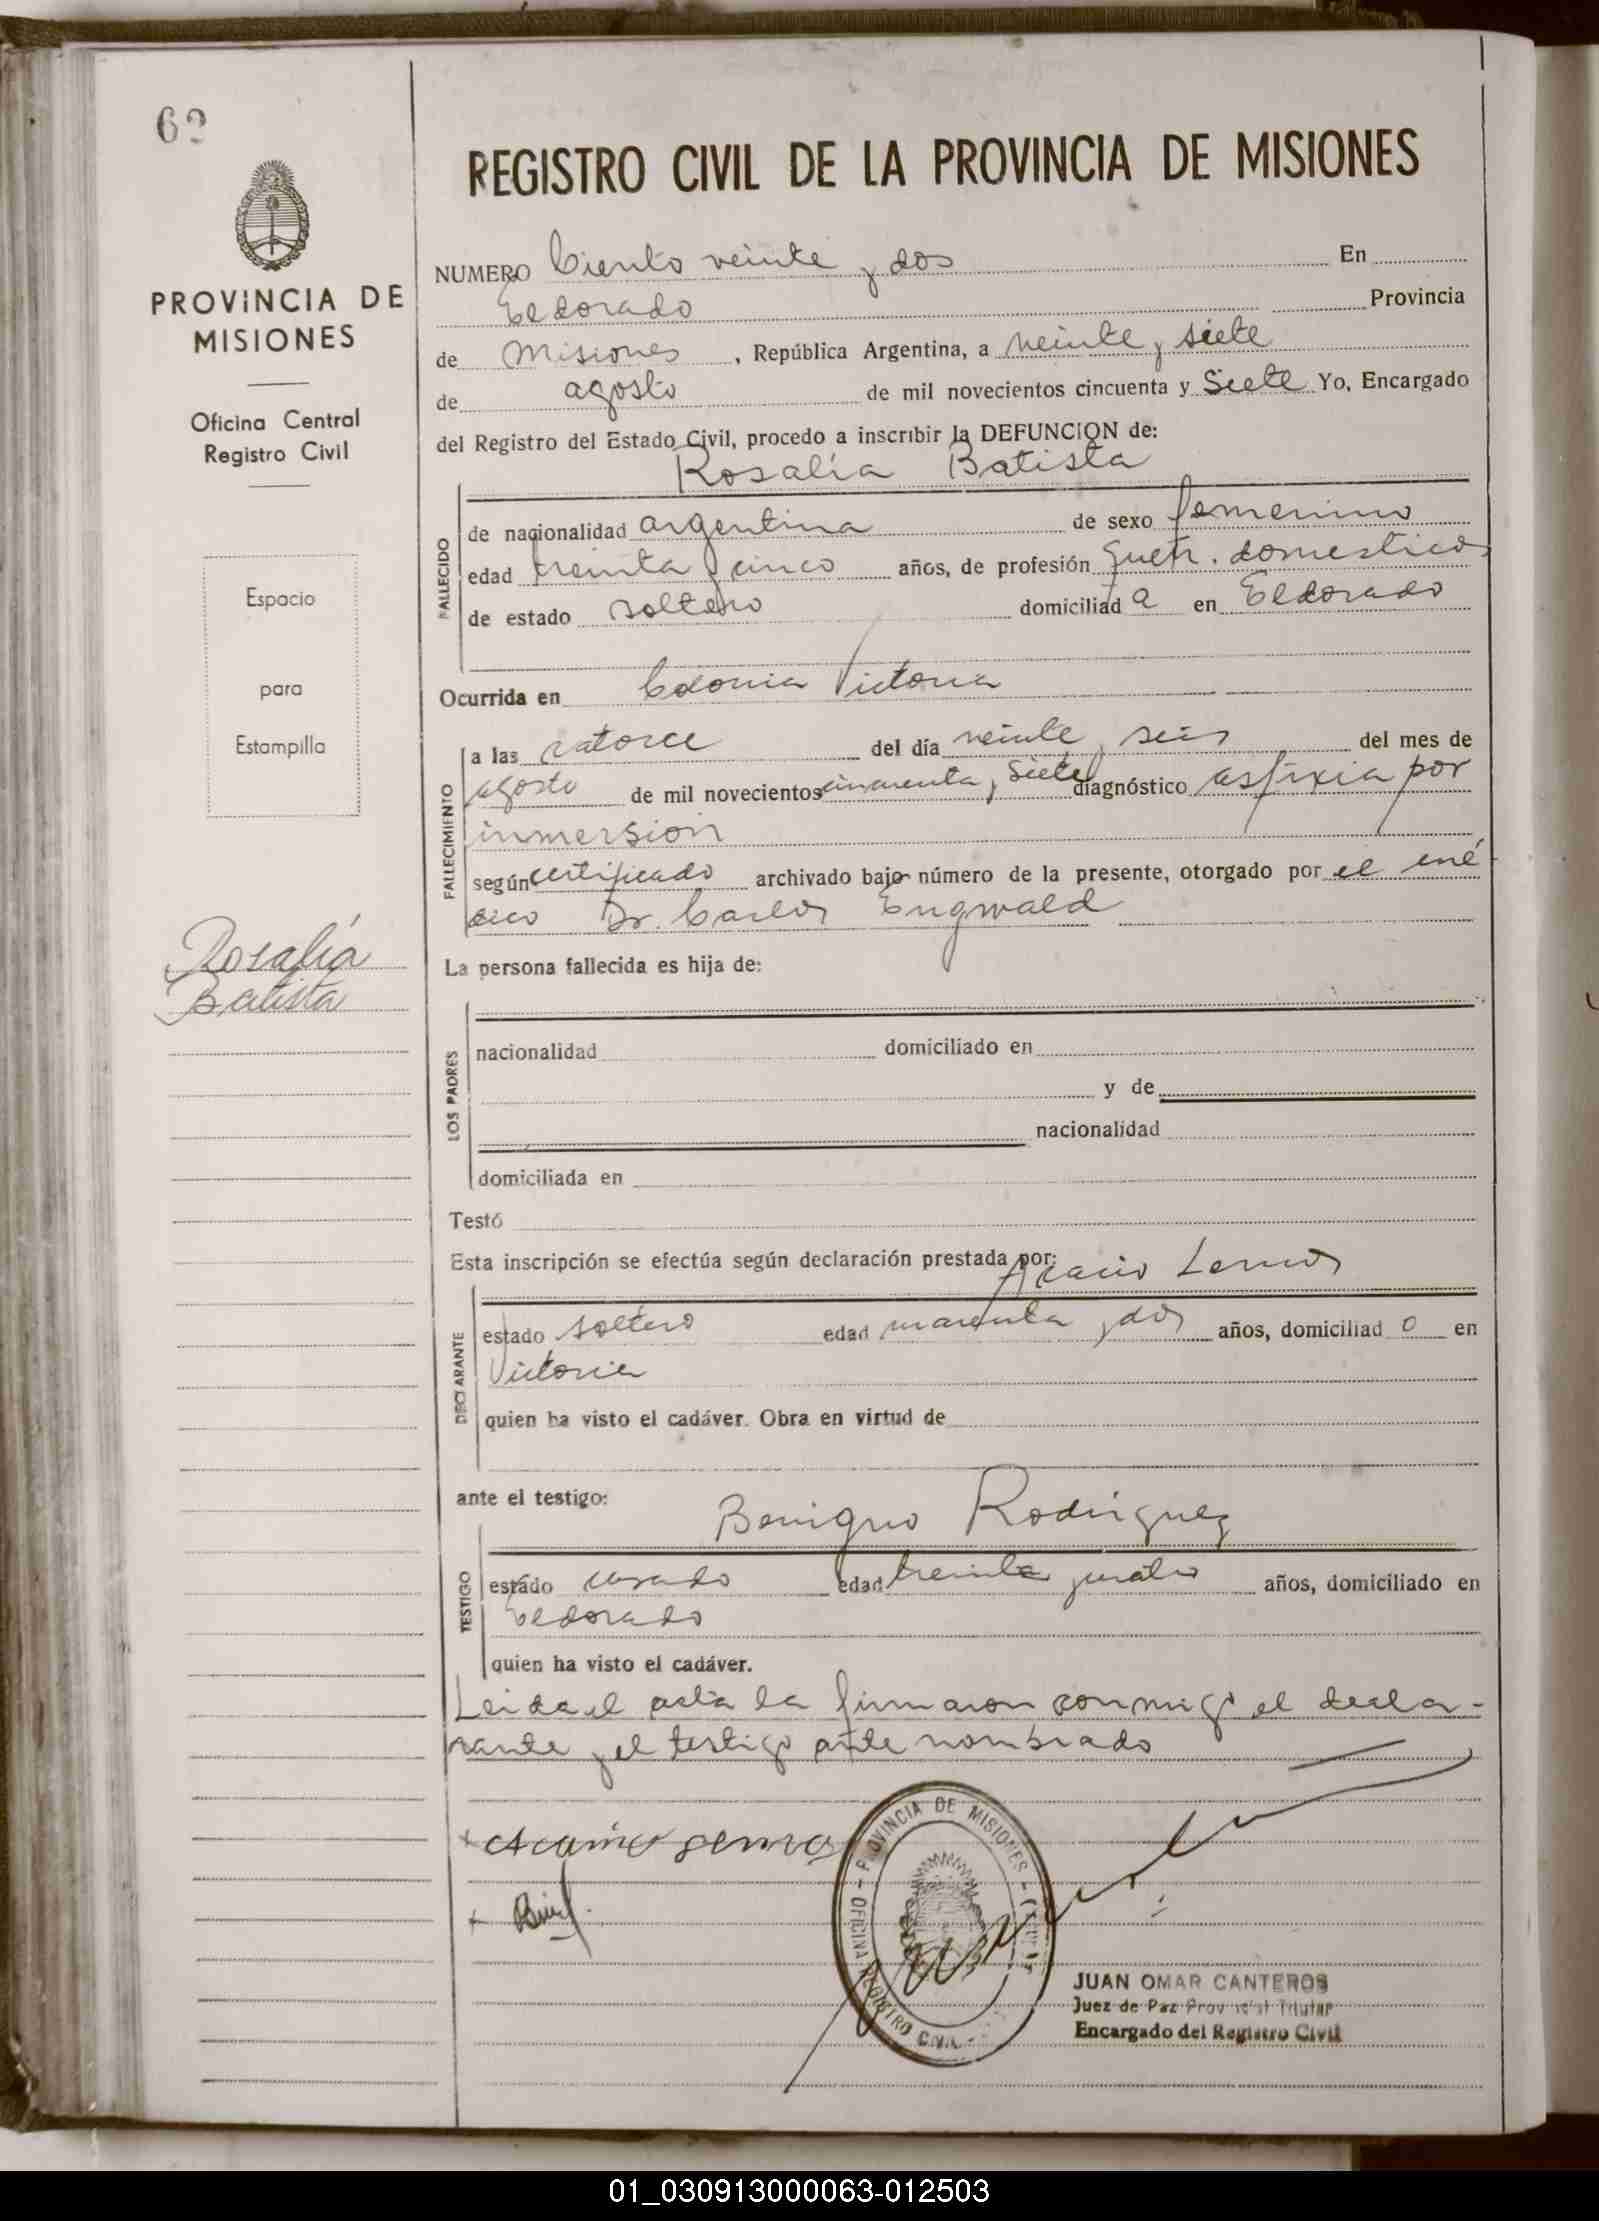 62
PROVINCIA DE
MISIONES
Oficina Central
Registro Civil
Espacio
para
Estampilla
Rosalía
Batista
REGISTRO CIVIL DE LA PROVINCIA DE MISIONES
NUMERO Ciento veinte y dos En
Eldorado Provincia
de Misiones, República Argentina, a veinte y siete
de agosto de mil novecientos cincuenta y Siete Yo, Encargado
del Registro del Estado Civil, procedo a inscribir la DEFUNCION de:
Rosalía Batista
FALLECIDO
de nacionalidad argentina de sexo femenino
edad treinta y cinco años, de profesión queh. domesticos
de estado soltero domiciliad a en Eldorado
Ocurrida en Colonia Victoria
FALLECIMIENTO
a las catorce del día veinte y seis del mes de
agosto de mil novecientos cincuenta y Siete diagnóstico asfixia por
inmersion
según certificado archivado bajo número de la presente, otorgado por el mé
dico Dr. Carlos Engwald
La persona fallecida es hija de:
LOS PADRES
nacionalidad domiciliado en
y de
nacionalidad
domiciliada en
Testó
Esta inscripción se efectúa según declaración prestada por: Acacio Lemos
DECLARANTE
estado soltero edad cuarenta y dos años, domiciliad o en
Victoria
quien ha visto el cadáver. Obra en virtud de
ante el testigo: Benigno Rodriguez
TESTIGO
estado casado edad treinta y cuatro años, domiciliado en
Eldorado
quien ha visto el cadáver.
Leida el acta la firmaron conmigo el decla-
rante y el testigo ante nombrado
PROVINCIA DE MISIONES
OFICINA REGISTRO CIVIL
JUAN OMAR CANTEROS
Juez de Paz Provincial Titular
Encargado del Registro Civil
01_030913000063-012503